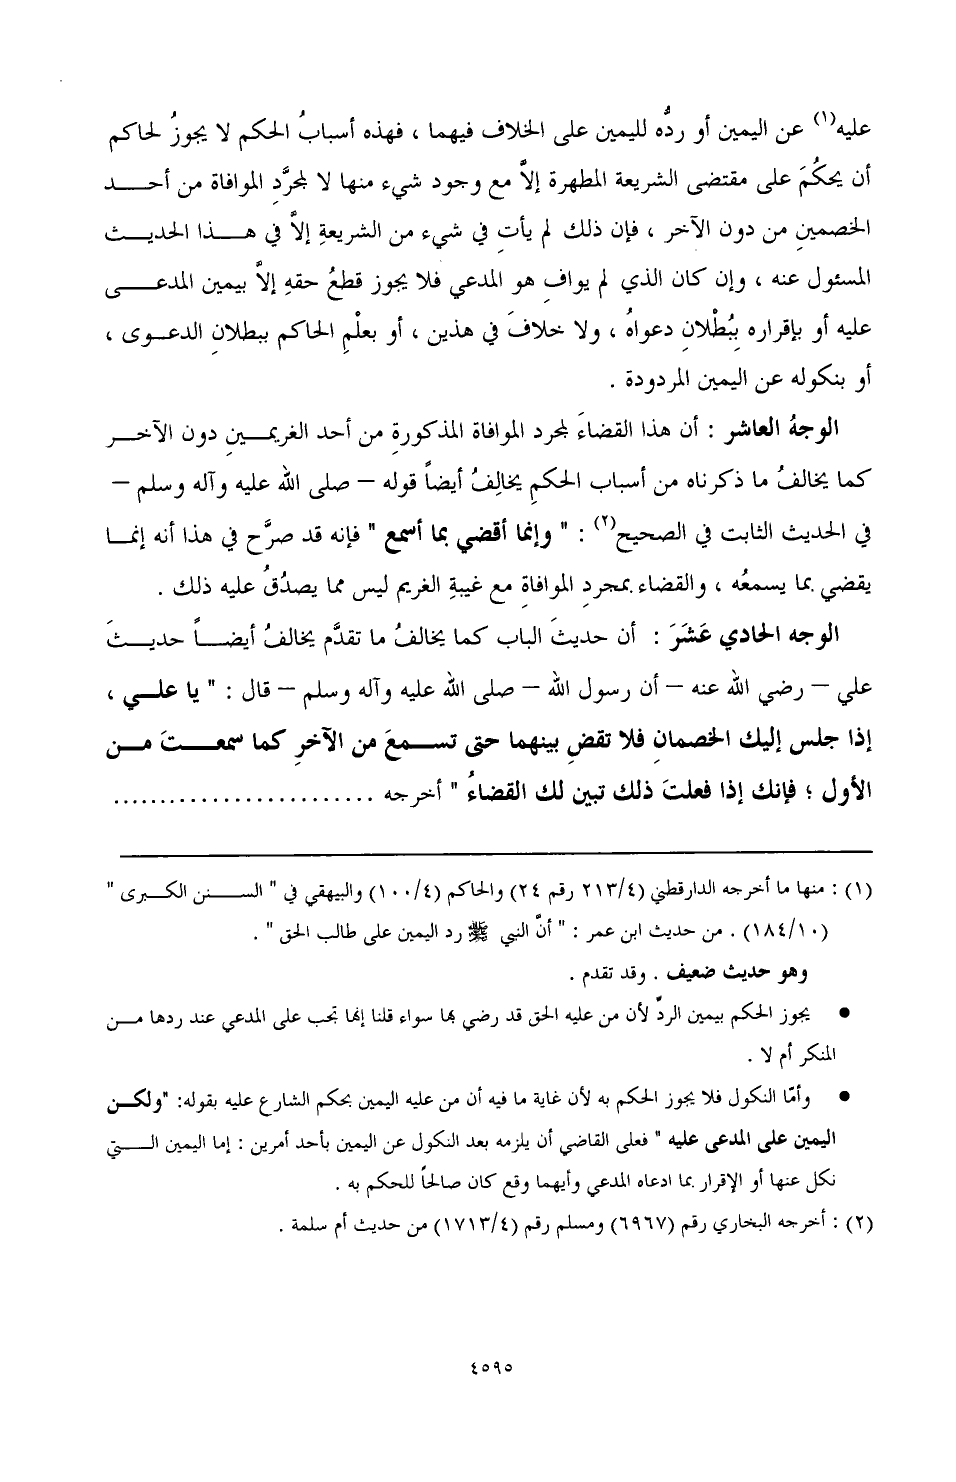 عليه(١) عن اليمين أو ردُّه لليمين على الخلاف فيهما ، فهذه أسبابُ الحكم لا يجوزُ لحاكم
أن يحكُمَ على مقتضى الشريعة المطهرة إلاَّ مع وجود شيء منها لا لمجرَّدِ الموافاة من أحد
الخصمينِ من دون الآخر ، فإن ذلك لم يأتِ في شيء من الشريعةِ إلاَّ في هذا الحديث
المسئول عنه ، وإن كان الذي لم يوافِ هو المدعي فلا يجوز قطعُ حقهِ إلاَّ بيمين المدعى
عليه أو بإقراره بِبُطْلانِ دعواهُ ، ولا خلافَ في هذين ، أو بعلْمِ الحاكم ببطلانِ الدعوى ،
أو بنكوله عن اليمين المردودة .
الوجهُ العاشر : أن هذا القضاءَ لمجرد الموافاة المذكورةِ من أحد الغريمينِ دون الآخر
كما يخالفُ ما ذكرناه من أسباب الحكمِ يخالِفُ أيضاً قوله – صلى الله عليه وآله وسلم –
في الحديث الثابت في الصحيح(٢) : " وإنما أقضي بما أسمع " فإنه قد صرَّح في هذا أنه إنما
يقضي بما يسمعُه ، والقضاء بمجردِ الموافاةِ مع غيبةِ الغريم ليس مما يصدُقُ عليه ذلك .
الوجه الحادي عَشَرَ : أن حديثَ الباب كما يخالفُ ما تقدَّم يخالفُ أيضاً حديثَ
علي – رضي الله عنه – أن رسول الله – صلى الله عليه وآله وسلم – قال : " يا علي ،
إذا جلس إليك الخصمانِ فلا تقضِ بينهما حتى تسمعَ من الآخرِ كما سمعتَ من
الأول ؛ فإنك إذا فعلتَ ذلك تبين لك القضاءُ " أخرجه .........................
(١) : منها ما أخرجه الدارقطني (٢١٣/٤ رقم ٢٤) والحاكم (١٠٠/٤) والبيهقي في " السنن الكبرى "
(١٨٤/١٠) . من حديث ابن عمر : " أنَّ النبي ﷺ رد اليمين على طالب الحق " .
وهو حديث ضعيف . وقد تقدم .
● يجوز الحكم بيمين الردّ لأن من عليه الحق قد رضي بها سواء قلنا إنها تجب على المدعي عند ردها من
المنكر أم لا .
● وأمّا النكول فلا يجوز الحكم به لأن غاية ما فيه أن من عليه اليمين بحكم الشارع عليه بقوله: "ولكن
اليمين على المدعى عليه " فعلى القاضي أن يلزمه بعد النكول عن اليمين بأحد أمرين : إما اليمين التي
نكل عنها أو الإقرار بما ادعاه المدعي وأيهما وقع كان صالحاً للحكم به .
(٢) : أخرجه البخاري رقم (٦٩٦٧) ومسلم رقم (١٧١٣/٤) من حديث أم سلمة .
٤٥٩٥